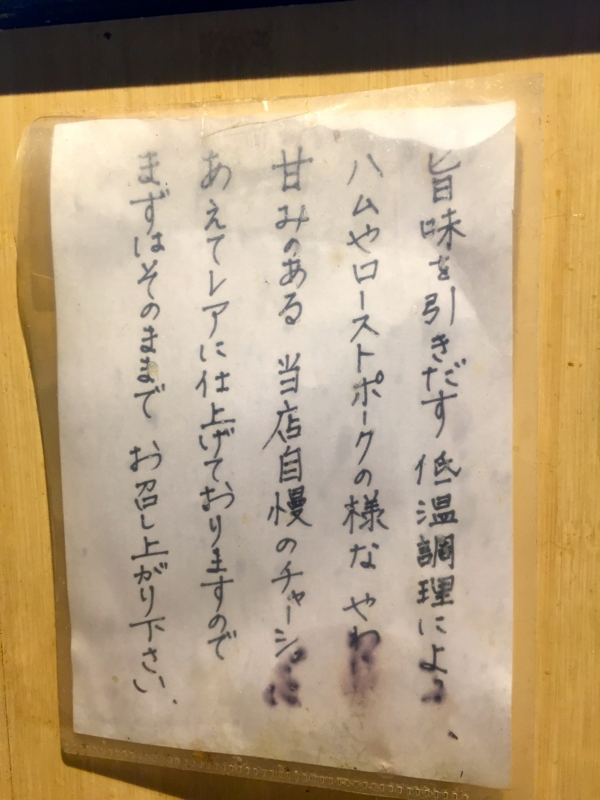 旨味を引きだす低温調理によ
ハムやローストポークの様な やわ
甘みのある 当店自慢のチャーシ
あえてレアに仕上げておりますので
まずはそのままで お召し上がり下さい.